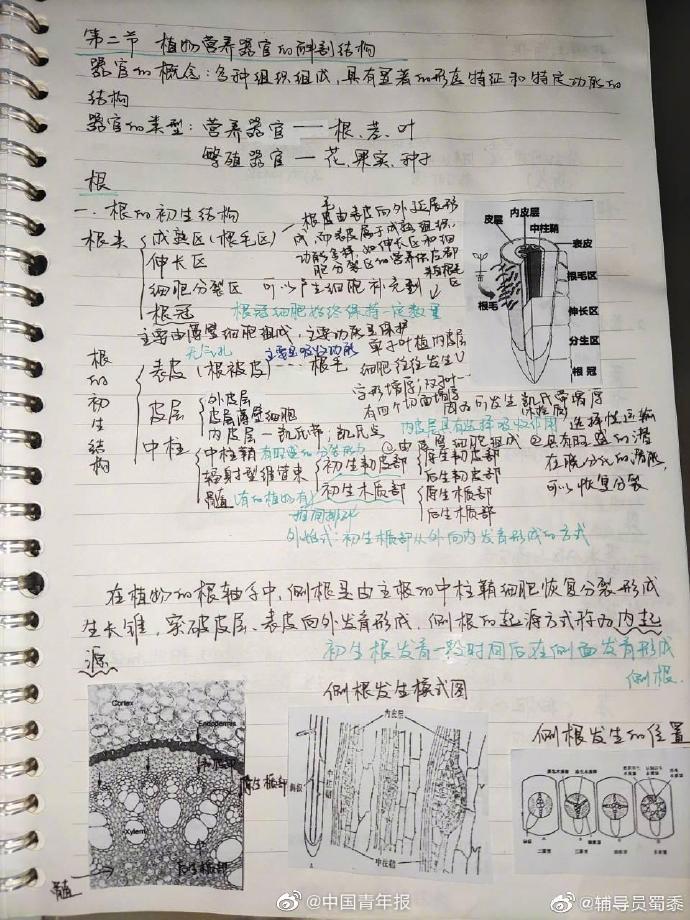 第二节 植物营养器官的解剖结构
器官的概念：多种组织组成，具有显著的形态特征和特定功能的
结构
器官的类型：营养器官 —— 根、茎、叶
繁殖器官 — 花、果实、种子
根
一、根的初生结构
根尖
成熟区（根毛区）
伸长区
细胞分裂区 可以产生细胞补充到
根冠 根冠细胞始终保持一定数量
主要由薄壁细胞组成，主要功能是保护
根毛由表皮向外延展形
成，而表皮属于成熟组织，
伸长区和细
胞分裂区
皮层
内皮层
中柱鞘
表皮
根毛区
根毛
伸长区
分生区
根冠
根的初生结构
无气孔
主要是吸收功能
表皮（根被皮） 根毛
皮层
外皮层
皮层薄壁细胞
内皮层 — 凯氏带，凯氏点
单子叶植物内皮层
细胞往往发生U
字形增厚，
有四个切面增厚
内皮层具有选择吸收作用
选择性运输
中柱
中柱鞘
①由 细胞组成 ②具有 的潜
在脱分化的潜能，
可以恢复分裂
辐射型维管束
初生韧皮部
原生韧皮部
后生韧皮部
初生木质部
原生木质部
后生木质部
髓（有的植物有）
相间排列
外始式：初生木质部从外向内发育形成的方式
在植物的根轴系中，侧根是由主根的中柱鞘细胞恢复分裂形成
生长锥，突破皮层、表皮向外发育形成，侧根的起源方式称为内起
源。
初生根发育一段时间后在侧面发育形成
侧根。
侧根发生模式图
侧根发生的位置
Cortex
Endodermis
原生木质部
Xylem
后生木质部
髓
内皮层
中柱鞘
@中国青年报
@辅导员蜀黍